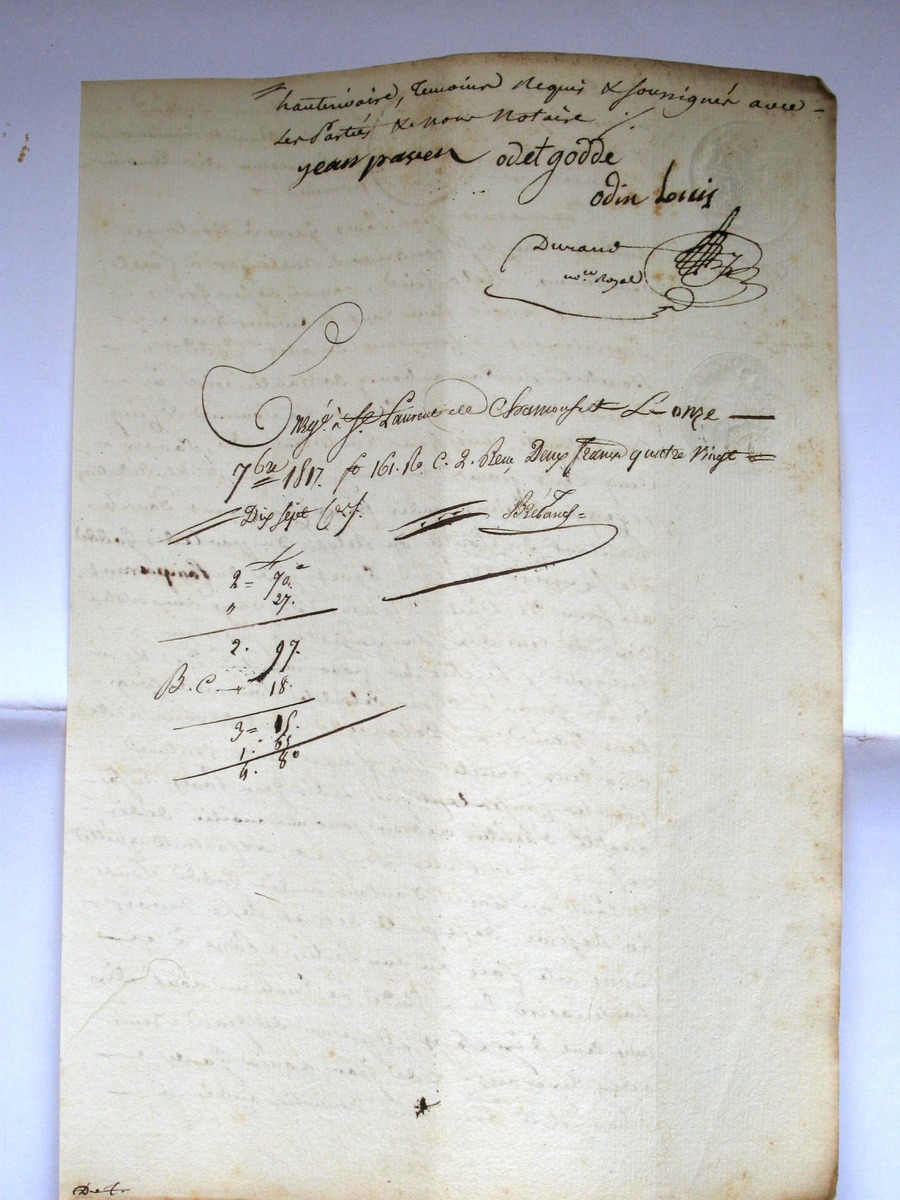 hauterivoire, temoins Requis & soussignés avec
les Parties & nous Notaire
jean paven odet godde
odin Louis
Durand
nore. Royal
Engé. à St. Laurent de Chamousset Le onze
7bre 1817. fo 161. Ro. C. 2. Reçu Deux francs quatre vingt
Dix sept Ces.
2 = 70.
" 27.
2. 97.
B. C 18.
3 = 15.
1. 65
4. 80